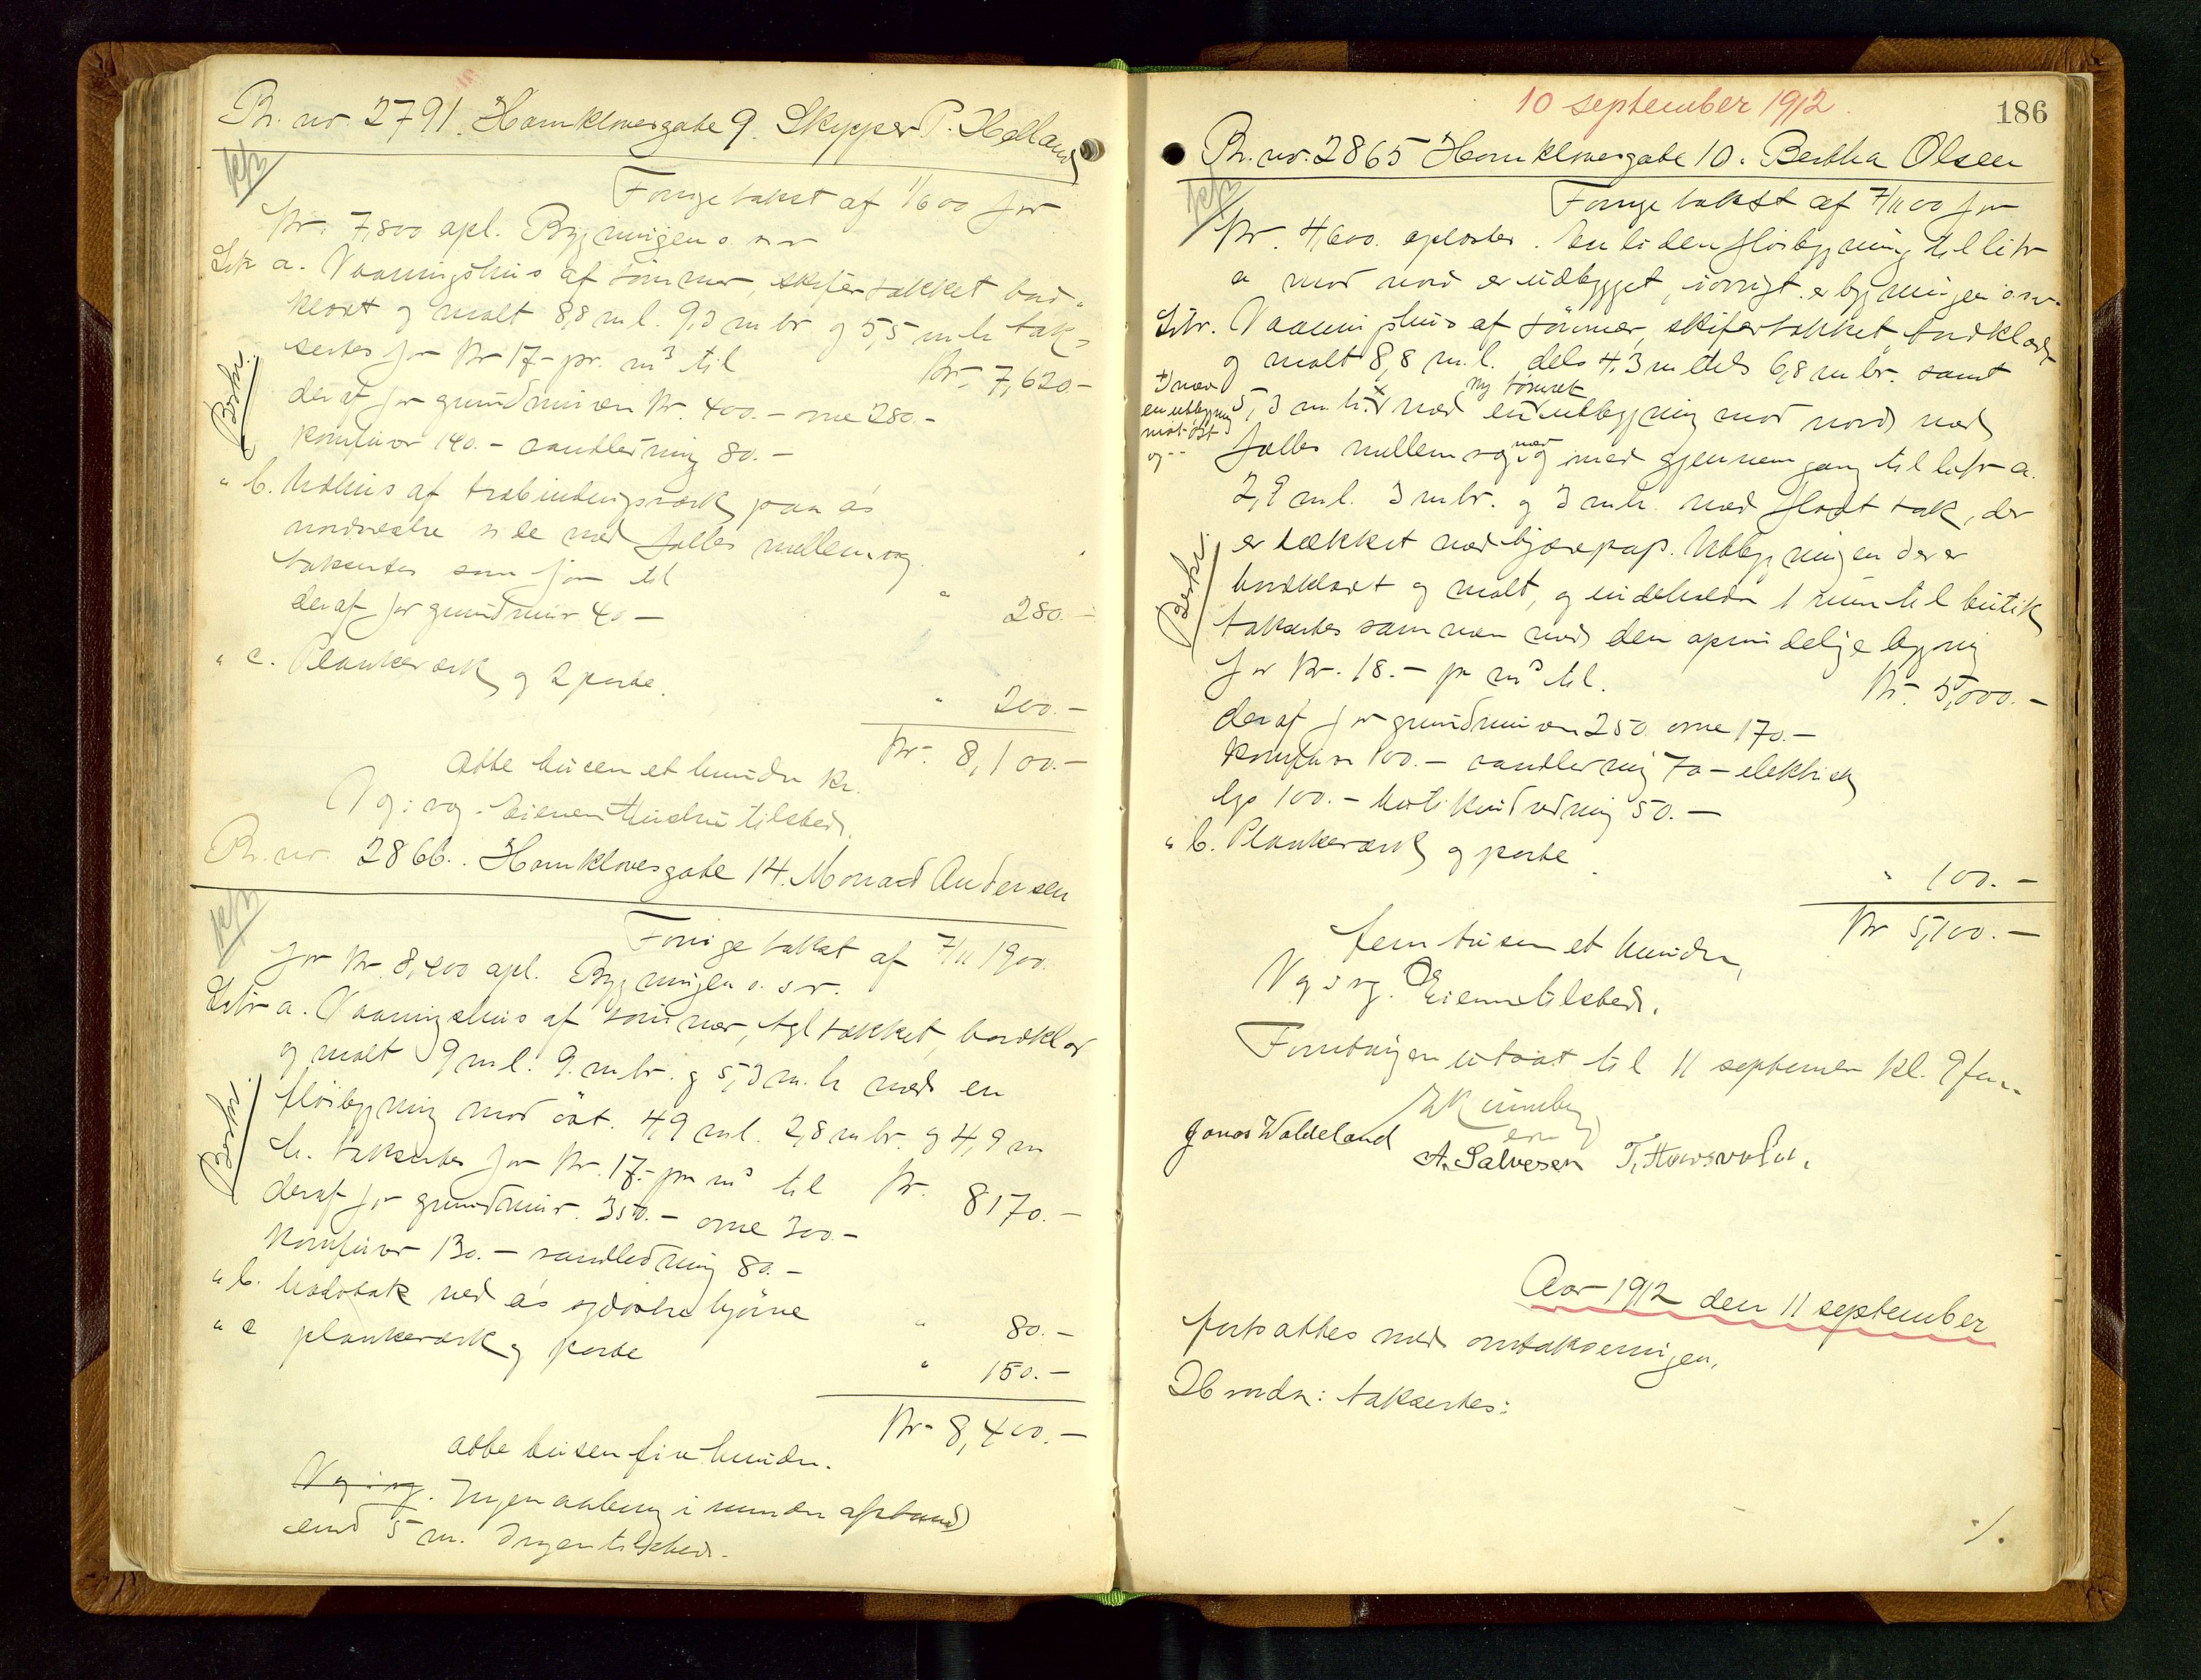 Br. nr. 2791. Homklovesgade 9. Skypper P. Helland
Forrige takst af 1/6 00 for
Kr. 7,800 opl. Bygningen o. s v
Litr a. Vaaningshus af tømmer, skifertækket bord-
klædt og malt 8,8 m l. 9,3 m br. og 5,5 m h tak-
sertes for Kr 17- pr. m³ til Kr. 7,620.-
deraf for grundmuren Kr. 400.- ovne 280.-
Komfurer 140.- vandledning 80.-
Beskr.
" b. Udhus af træbindingsværk paa a's
nordvestre side med fælles mellemvæg
taksertes som før til " 280.-
deraf for grundmur 40 -
" c. Plankeværk og 2 porte. " 200.-
Kr. 8,100.-
Otte tusen et hundre kr.
V g: vg. Eierens Hustru tilstede.
Br. nr. 2866. Homklovesgade 14. Monrad Andersen
Forrige takst af 7/11 1900.
for Kr. 8,400 opl. Bygningen o. s v.
Litr a. Vaaningshus af tømmer, tegltækket, bordklæd
og malt 9 m l. 9. m br. og 5,3 m. h med en
fløibygning mod øst. 4,9 m l. 2,8 m br. og 4,9 m
h. taksertes for Kr. 17.- pr m³ til Kr. 8170.-
deraf for grundmur. 350.- ovne 300.-
Komfurer 130.- vandledning 80.-
Beskr.
" b. ved a's sydvestre hjørne " 80.-
" c plankeværk og porte " 150.-
Kr. 8,400.-
otte tusen fire hundre.
V g: vg. Ingen anbring i mindre afstand
end 5 m. Ingen tilstede.
10 september 1912.
186
Br. nr. 2865 Homklovesgade 10. Bertha Olsen
Forrige takst af 7/11 00 for
Kr. 4,600. oplæstes. En liden fløibygning til litr
a mod nord er udbygget, iøvrigt er bygningen o s v.
Litr. Vaaningshus af tømmer, skifertækket, bordklædt
og malt 8,8 m. l. dels 4,3 m dels 6,8 m br. samt
5,3 m. h. med en ny tømret utbygning mod nord med
+) med
en utbygning
mot øst
og --
fælles mellemvæg og med gjennemgang til litr a.
2,9 m l. 3 m br. og 3 m h. med fladt tak, der
er tækket med tjærepap. Utbygningen der er
bordklædt og malt, og indeholder 1 rum til butik
taksertes sammen med den oprindelige bygning
for Kr. 18.- pr m³ til. Kr. 5,000.-
deraf for grundmuren 250 ovne 170.-
Komfurer 100.- vandledning 70 - elektrisk
lys 100.- butikindredning 50.-
Beskr.
" b. Plankeværk og porte. " 100.-
Kr 5,100.-
fem tusen et hundre,
V g: vg. Eieren tilstede.
Forretningen utsat til 11 september kl. 9 fm.
Jonas Waldeland A. Salvesen
Aar 1912 den 11 september
fortsattes med omtakseringen.
Db. taksertes:
./.